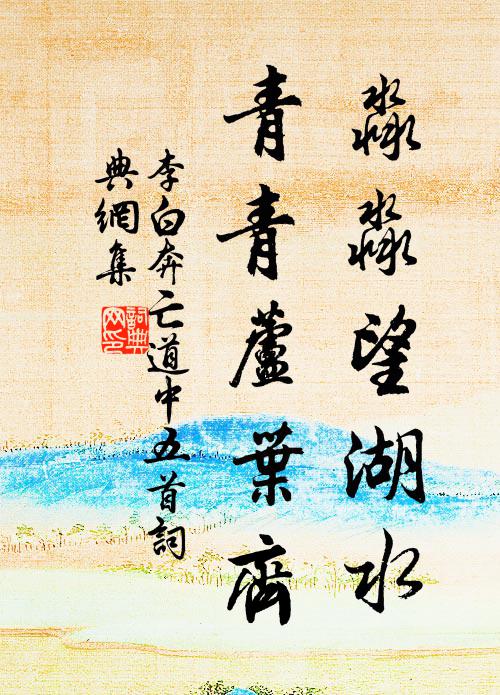 淼淼望湖水
青青蘆葉齊
李白奔亡道中五首詞
典網集
詞典网印